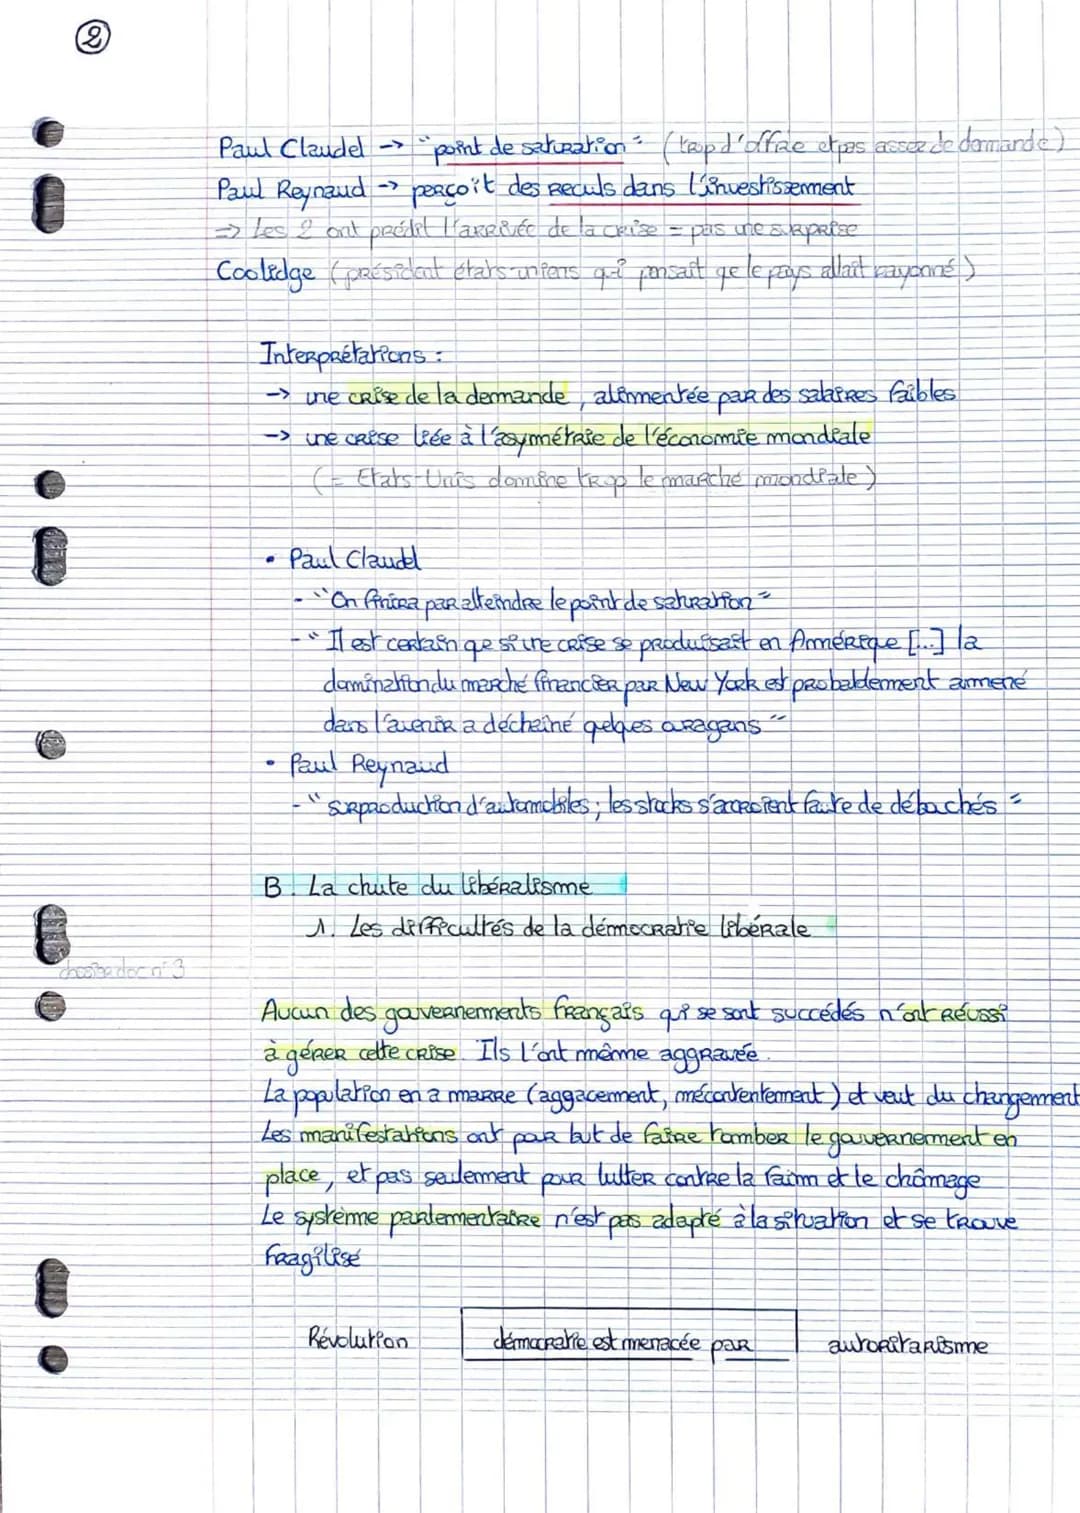 2
Paul Claudel -> "point de saturation" (trop d'offre et pas assez de demande)
Paul Reynaud -> perçoit des reculs dans l'investissement
=> Les 2 ont prédit l'arrivée de la crise = pas une surprise
Coolidge (président états-uniens qui pensait que le pays allait rayonné)
Interprétations :
-> une crise de la demande, alimentée par des salaires faibles
-> une crise liée à l'asymétrie de l'économie mondiale
(= Etats-Unis domine trop le marché mondiale)
• Paul Claudel
- "On finira par atteindre le point de saturation"
- "Il est certain que si une crise se produisait en Amérique [...] la
domination du marché financier par New York est probablement amené
dans l'avenir a décheiné quelques oragans"
• Paul Reynaud
- "surproduction d'automobiles ; les stocks s'accroient faute de débachés"
B. La chute du libéralisme
1. Les difficultés de la démocratie libérale
doc n°3
Aucun des gouvernements français qui se sont succédés n'ont réussi
à gérer cette crise. Ils l'ont même aggravée.
La population en a marre (aggacement, mécontentement) et veut du changement
Les manifestations ont pour but de faire tomber le gouvernement en
place, et pas seulement pour lutter contre la faim et le chômage
Le système parlementaire n'est pas adapté à la situation et se trouve
fragilisé
Révolution démocratie est menacée par autoritarisme